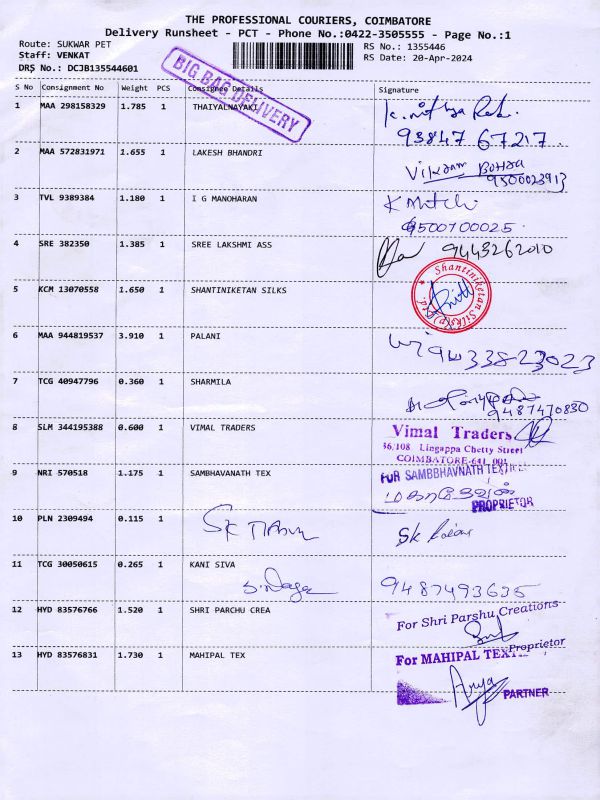 THE PROFESSIONAL COURIERS, COIMBATORE
Delivery Runsheet - PCT - Phone No.:0422-3505555 - Page No.:1
Route: SUKWAR PET
RS No.: 1355446
Staff: VENKAT
RS Date: 20-Apr-2024
DRS No.: DCJB135544601
BIG BAG DELIVERY
S No Consignment No Weight PCS Consignee Details Signature
1 MAA 298158329 1.785 1 THAIYALNAYAKI
93847 67217
2 MAA 572831971 1.655 1 LAKESH BHANDRI
Vikram Bothra
9500023913
3 TVL 9389384 1.180 1 I G MANOHARAN
9500700025
4 SRE 382350 1.385 1 SREE LAKSHMI ASS
9443262010
5 KCM 13070558 1.650 1 SHANTINIKETAN SILKS
Shantiniketan Silks (p) Ltd.
6 MAA 944819537 3.910 1 PALANI
7 TCG 40947796 0.360 1 SHARMILA
9487470830
8 SLM 344195388 0.600 1 VIMAL TRADERS
Vimal Traders
36/108 Lingappa Chetty Street
COIMBATORE-641 001
9 NRI 570518 1.175 1 SAMBHAVANATH TEX
FOR SAMBBHAVNATH TEXTILE
PROPRIETOR
10 PLN 2309494 0.115 1
SK
SK
11 TCG 30050615 0.265 1 KANI SIVA
9487493635
12 HYD 83576766 1.520 1 SHRI PARCHU CREA
For Shri Parshu Creations
Proprietor
13 HYD 83576831 1.730 1 MAHIPAL TEX
For MAHIPAL TEX
PARTNER